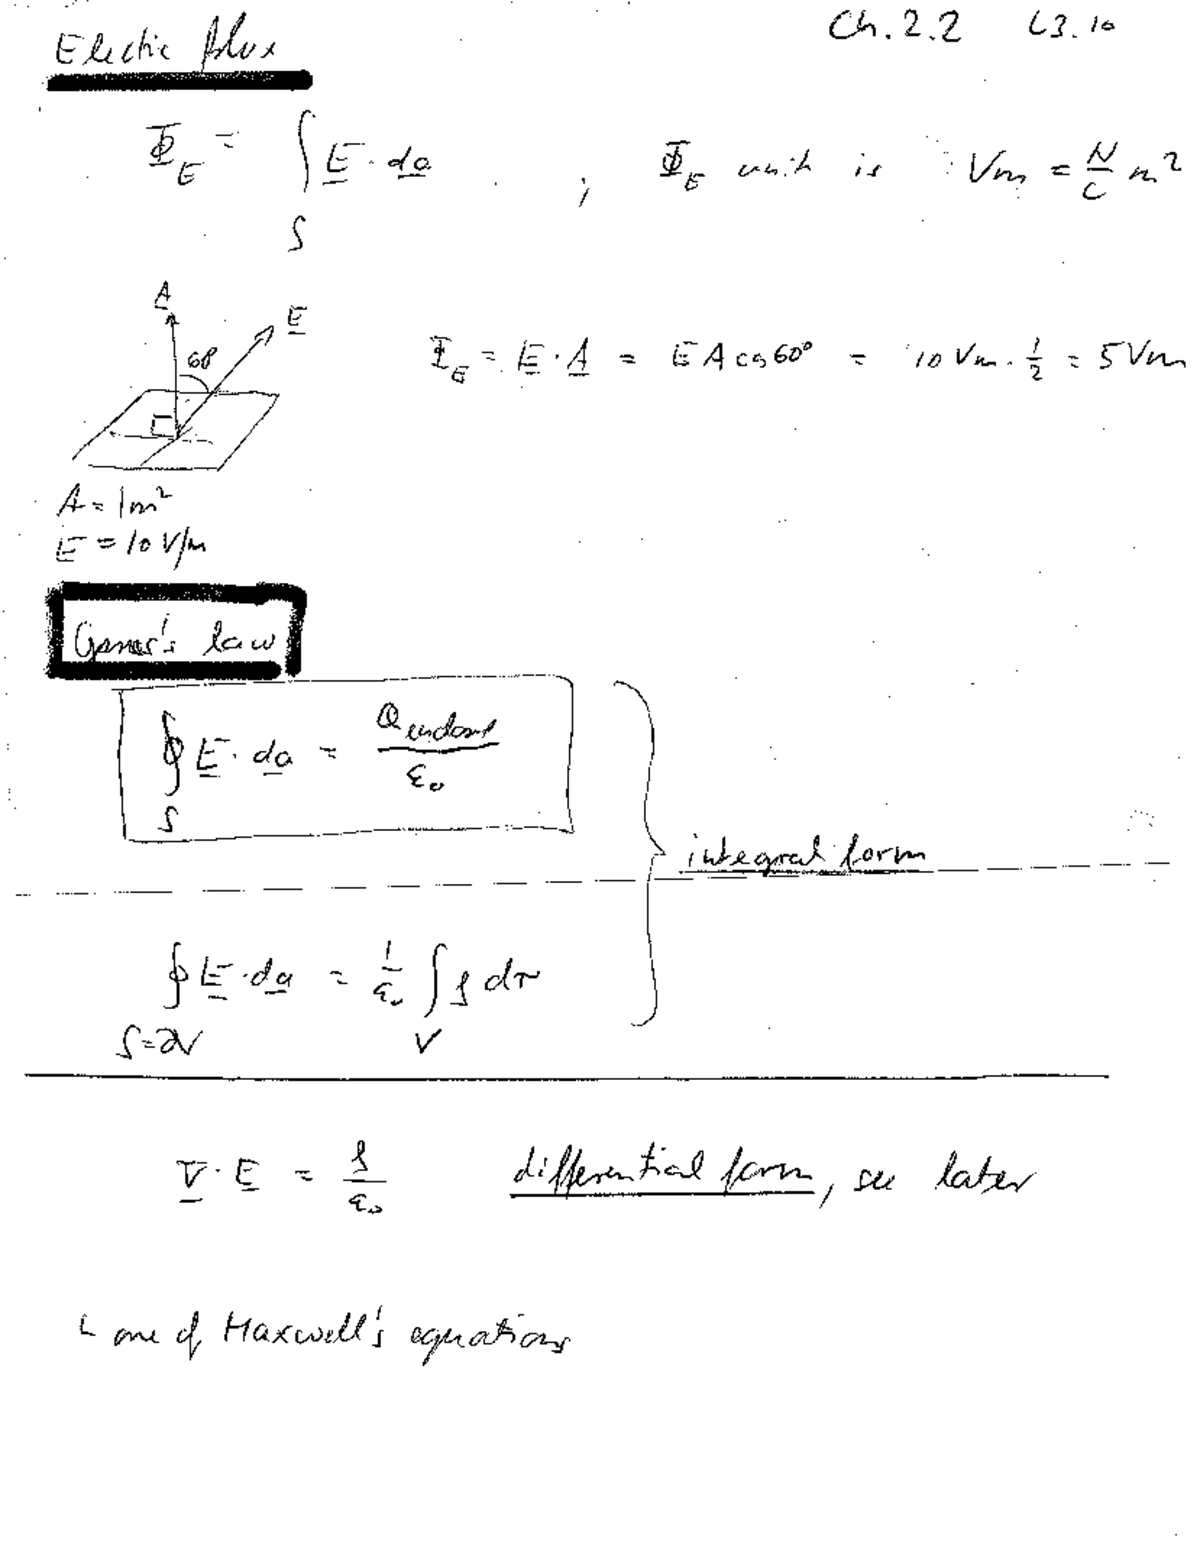 Ch. 2.2 L3.10
Electric flux
Φ_E = ∫_S E · da ; Φ_E unit is Vm = N/C m²
A
E
60°
Φ_E = E · A = E A cos 60° = 10 Vm · 1/2 = 5 Vm
A = 1m²
E = 10 V/m
Gauss's law
∮_S E · da = Q enclosed / ε₀
integral form
∮_S=∂V E · da = 1/ε₀ ∫_V ρ dτ
∇ · E = ρ/ε₀ differential form, see later
one of Maxwell's equations